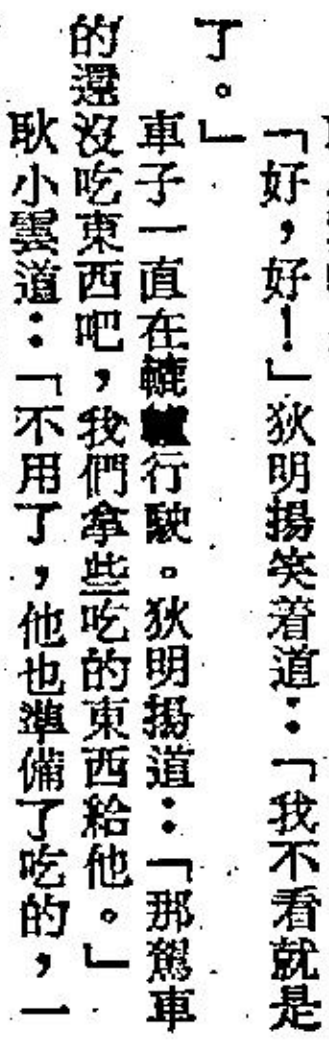 「好，好！」狄明揚笑着道：「我不看就是
了。」
車子一直在轆轤行駛。狄明揚道：「那駕車
的還沒吃東西吧，我們拿些吃的東西給他。」
耿小雲道：「不用了，他也準備了吃的，一